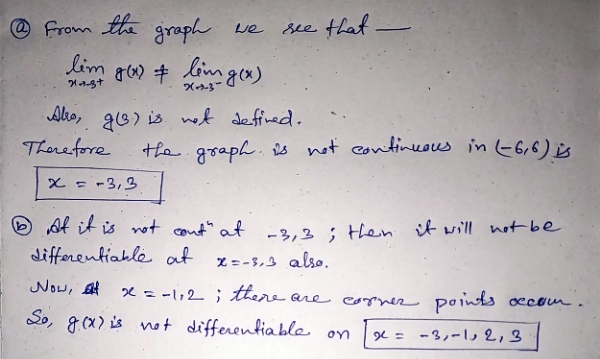 ⓐ From the graph we see that —
lim x→-3⁺ g(x) ≠ lim x→-3⁻ g(x)
Also, g(3) is not defined.
Therefore the graph is not continuous in (-6,6) is
x = -3,3
ⓑ As it is not contⁿ at -3,3 ; then it will not be
differentiable at x=-3,3 also.
Now, at x = -1,2 ; there are corner points occur.
So, g(x) is not differentiable on x = -3,-1,2,3